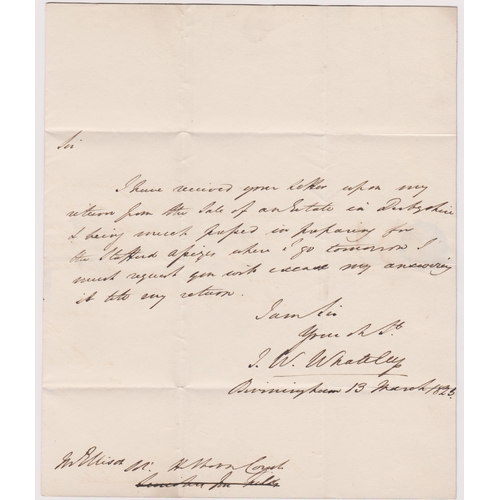 Sir
I have received your letter upon my
return from the Sale of an Estate in Derbyshire
& being much pressed in preparing for
the Stafford Assizes where I go tomorrow I
must request you will excuse my answering
it till my return.
I am Sir
Your ob St
J. W. Whateley
Birmingham 13 March 1826.
Mr Ellison
Lincolns Inn Fields